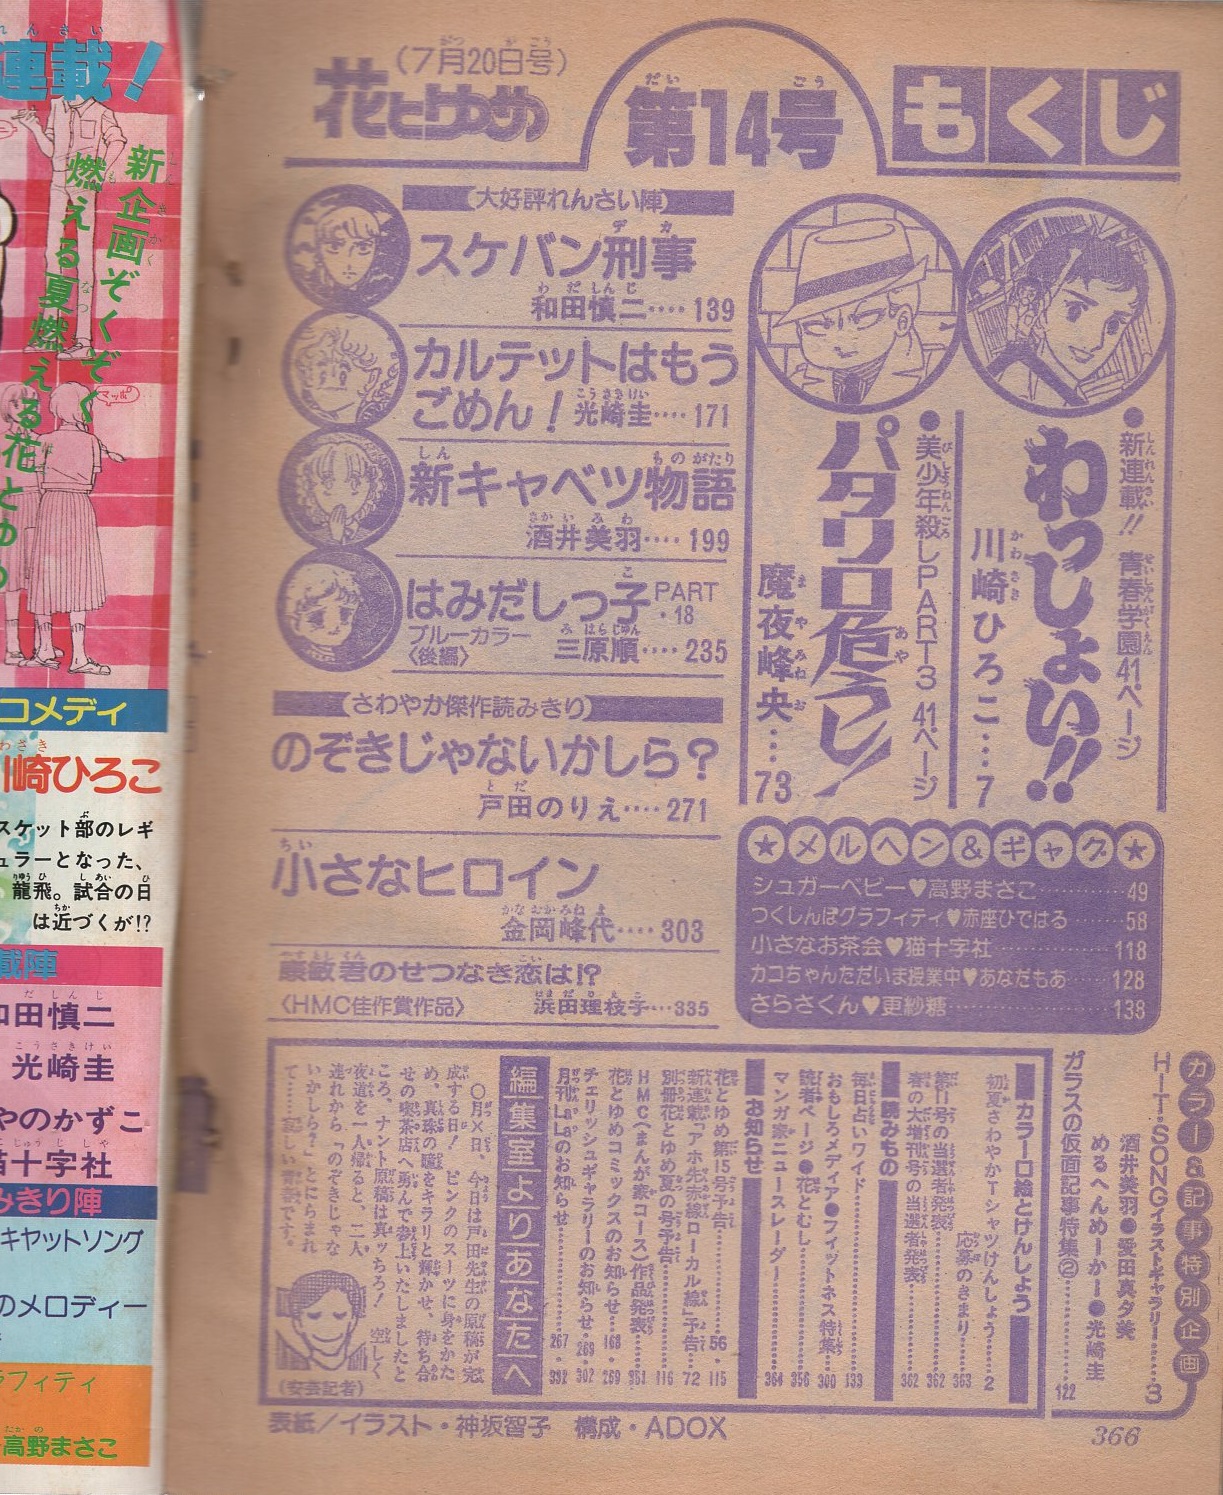 もくじ
第14号
(7月20日号)
花とゆめ
●新連載!! 青春学園41ページ
わっしょい!!
川崎ひろこ…7
●美少年殺しPART3 41ページ
パタリロ危うし!
魔夜峰央…73
大好評れんさい陣
スケバン刑事
和田慎二‥‥139
カルテットはもう
ごめん! 光崎圭‥‥171
新キャベツ物語
酒井美羽‥‥199
はみだしっ子 PART・18
ブルーカラー
〈後編〉 三原順‥‥235
さわやか傑作読みきり
のぞきじゃないかしら?
戸田のりえ‥‥271
小さなヒロイン
金岡峰代‥‥303
康敏君のせつなき恋は!?
〈HMC佳作賞作品〉 浜田理枝子…335
★メルヘン&ギャグ★
シュガーベビー♥高野まさこ………49
つくしんぼグラフィティ♥赤座ひではる……58
小さなお茶会♥猫十字社………118
カコちゃんただいま授業中♥あなだもあ……128
さらさくん♥更紗糖………138
カラー&記事特別企画
HIT・SONGイラストギャラリー……3
酒井美羽●愛田真夕美
めるへんめーかー●光崎圭
ガラスの仮面記事特集②………122
カラー口絵とけんしょう
初夏さわやかTシャツけんしょう……2
応募のきまり………363
第11号の当選者発表………362
春の大増刊号の当選者発表………362
読みもの
毎日占いワイド………133
おもしろメディア●フィットネス特集…300
読者ページ●花とむし………356
マンガ家ニュースレーダー………364
お知らせ
花とゆめ第15号予告………56・115
新連載「アホ先赤線ローカル線」予告…72
別冊花とゆめ夏の号予告………116
HMC(まんが家コース)作品発表…351
花とゆめコミックスのお知らせ…168・269
チェリッシュギャラリーのお知らせ・269・302
月刊LaLaのお知らせ………267・332
編集室よりあなたへ
〇月×日、今日は戸田先生の原稿が完
成する日! ピンクのスーツに身をかた
め、真珠の瞳をキラリと輝かせ、待ち合
せの喫茶店へ勇んで参上いたしましたと
ころ、ナント原稿は真ッちろ! 空しく
夜道を一人帰ると、二人
連れから、「のぞきじゃな
いかしら?」とにらまれ
て……哀しい青春です。
(安芸記者)
表紙/イラスト・神坂智子 構成・ADOX
366
連載!
新企画ぞくぞく
燃える夏燃える花とゆ
マッポ
コメディ
川崎ひろこ
スケット部のレギ
ュラーとなった、
龍飛。試合の日
は近づくが!?
載陣
和田慎二
光崎圭
やのかずこ
猫十字社
みきり陣
キャットソング
のメロディー
ラフィティ
高野まさこ